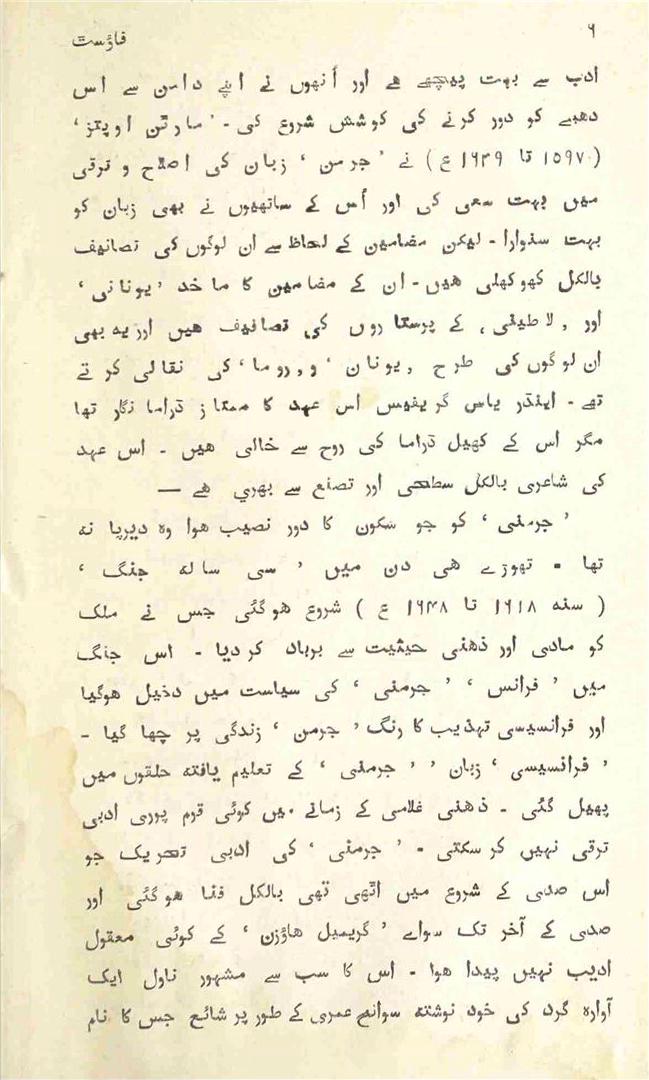 ۶
فاؤست
ادب سے بہت پیچھے ہے اور اُنھوں نے اپنے دامن سے اس
دھبے کو دور کرنے کی کوشش شروع کی - ' مارٹن اوپتز '
( ۱۵۹۷ تا ۱۶۳۹ ع ) نے ' جرمن ' زبان کی اصلاح و ترقی
میں بہت سعی کی اور اُس کے ساتھیوں نے بھی زبان کو
بہت سنوارا - لیکن مضامین کے لحاظ سے ان لوگوں کی تصانیف
بالکل کھوکھلی ھیں - ان کے مضامین کا ماخذ ' یونانی '
اور ' لاطینی ' کے پرستاروں کی تصانیف ھیں اور یہ بھی
ان لوگوں کی طرح ' یونان ' و ' روما ' کی نقالی کرتے
تھے - اینڈریاس گریفیس اس عہد کا ممتاز ڈراما نگار تھا
مگر اس کے کھیل ڈراما کی روح سے خالی ھیں - اس عہد
کی شاعری بالکل سطحی اور تصنع سے بھری ھے —
' جرمنی ' کو جو سکون کا دور نصیب ھوا وہ دیرپا نہ
تھا - تھوڑے ھی دن میں ' سی سالہ جنگ '
( سنہ ۱۶۱۸ تا ۱۶۴۸ ع ) شروع ھوگئی جس نے ملک
کو مادی اور ذھنی حیثیت سے برباد کردیا - اس جنگ
میں ' فرانس ' ' جرمنی ' کی سیاست میں دخیل ھوگیا
اور فرانسیسی تہذیب کا رنگ ' جرمن ' زندگی پر چھا گیا -
' فرانسیسی ' زبان ' ' جرمنی ' کے تعلیم یافتہ حلقوں میں
پھیل گئی - ذھنی غلامی کے زمانے میں کوئی قوم پوری ادبی
ترقی نہیں کرسکتی - ' جرمنی ' کی ادبی تحریک جو
اس صدی کے شروع میں اٹھی تھی بالکل فنا ھوگئی اور
صدی کے آخر تک سواے ' گریمیل ھاؤزن ' کے کوئی معقول
ادیب نہیں پیدا ھوا - اس کا سب سے مشہور ناول ایک
آوارہ گرد کی خود نوشتہ سوانح عمری کے طور پر شائع جس کا نام